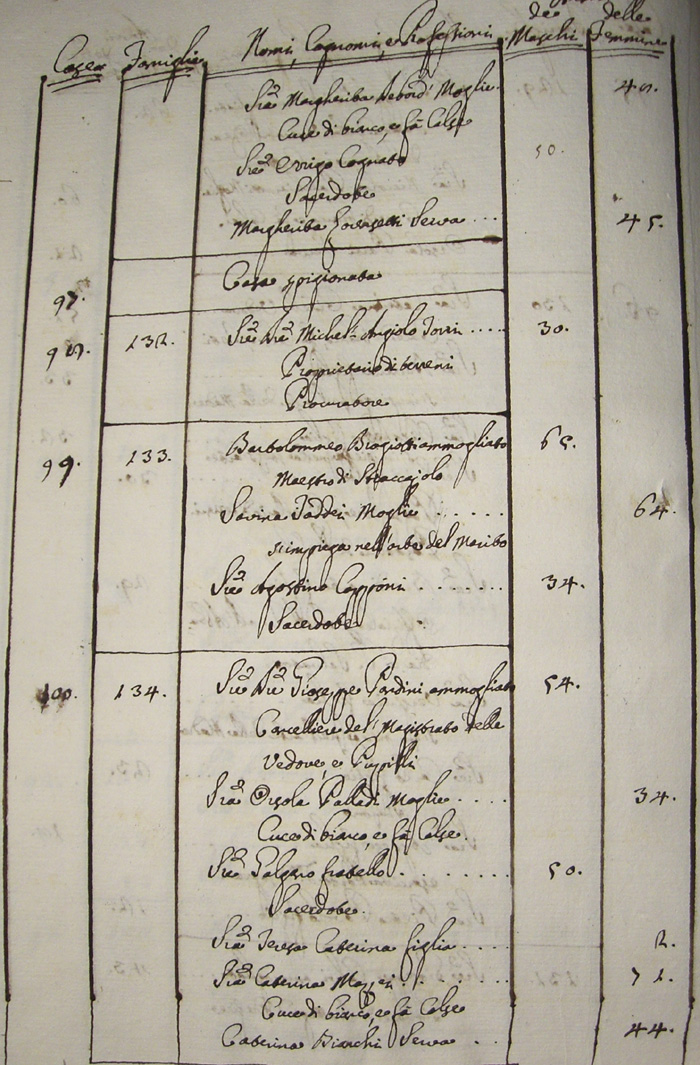 de delle
Case Famiglie Nomi, Cognomi, e Professioni Maschi Femmine
Sra. Margherita Moglie. 48.
Cuce di bianco, e fà Calze
Sre. Cognato 50.
Sacerdote
Margherita Serva ... 45.
97. Casa spigionata
98. 132. Sre. Dre. Michel Angiolo ..... 30.
Proprietario di terreni
Procuratore
99. 133. Bartolommeo Biagiotti ammogliato 65.
Maestro di
Savina Taddei Moglie ...... 64.
s'impiega nell'arte del Marito
Sre. Agostino Capponi ....... 34.
Sacerdote
100. 134. Sre. Dre. Giuseppe Pardini ammogliato 54.
Cancelliere del Magistrato delle
Vedove, e Pupilli
Sra. Orsola Palladi Moglie .... 34.
Cuce di bianco, e fà Calze.
Sre. Galgano fratello ........ 50.
Sacerdote.
Sra. Teresa Caterina figlia .... 2.
Sra. Caterina ....... 72.
Cuce di bianco, e fà Calze
Caterina Bianchi Serva .. 44.